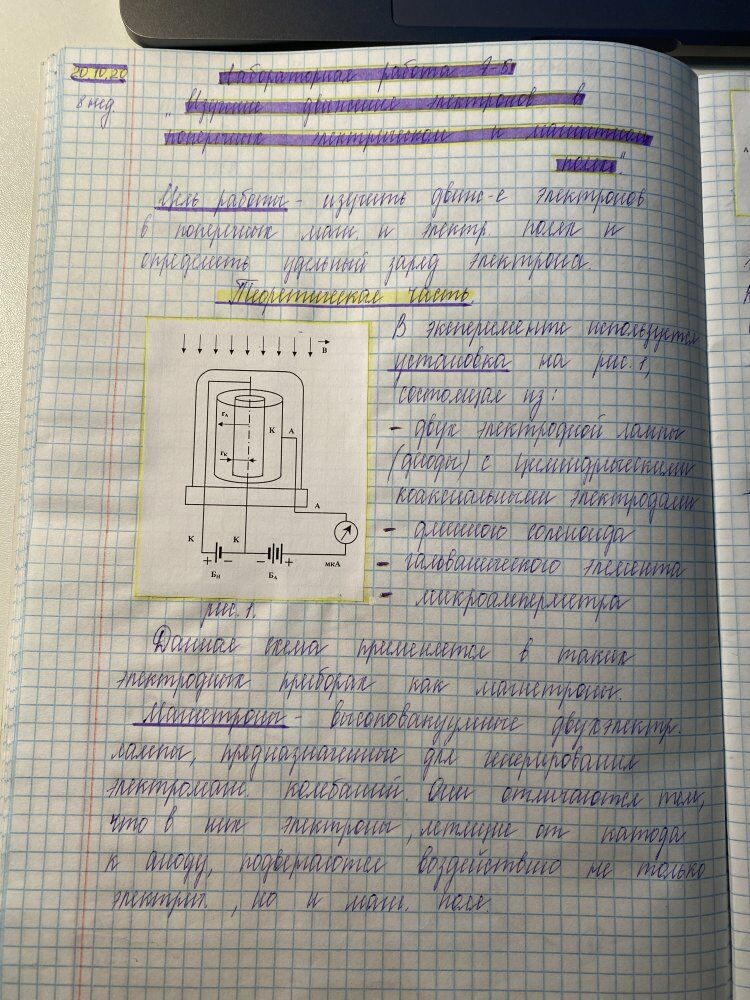 20.10.20
Лабораторная работа 7-Б
8 нед.
"Изучение движение электронов в
поперечных электрическом и магнитном
полях".
Цель работы - изучить движ-е электронов
в поперечных магн. и электр. полях и
определить удельный заряд электрона.
Теоретическая часть
В эксперименте используется
установка на рис. 1,
состоящая из:
- двух электродной лампы
(диоды) с цилиндрическими
коаксиальными электродами
- длинного соленоида
- гальванического элемента
- микроамперметра
B
rА
К А
rК
А
К К
+ - - +
БН БА мкА
рис. 1.
Данная схема применяется в таких
электродных приборах как магнетроны.
Магнетроны - высоковакуумные двухэлектр.
лампы, предназначенные для генерирования
электромагн. колебаний. Они отличаются тем,
что в них электроны, летящие от катода
к аноду, подвергаются воздействию не только
электрич., но и магн. поля